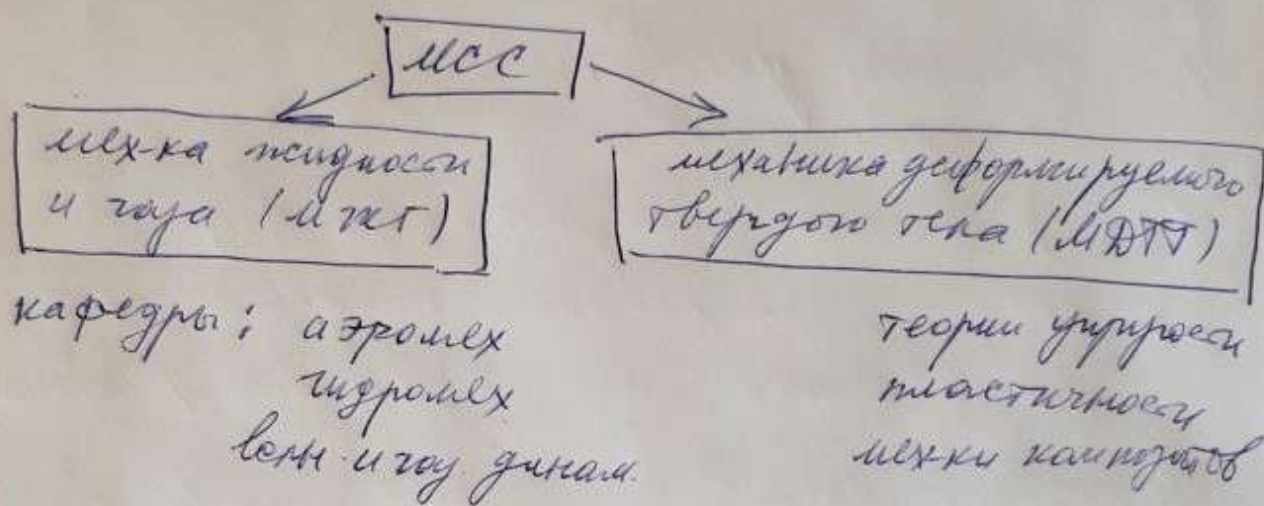 МСС
мех-ка жидкости
и газа (МЖГ)
механика деформируемого
твердого тела (МДТТ)
кафедры: аэромех
гидромех
волн. и газ. динам.
теории упругости
пластичности
мех-ки композитов